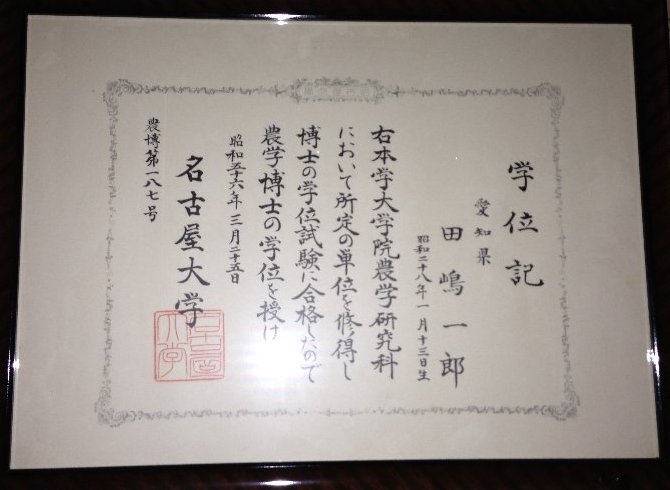 学位記
愛知県
田嶋一郎
昭和二十八年一月十三日生
右本学大学院農学研究科
において所定の単位を修得し
博士の学位試験に合格したので
農学博士の学位を授ける
昭和五十六年三月二十五日
名古屋大学
農博第一八七号